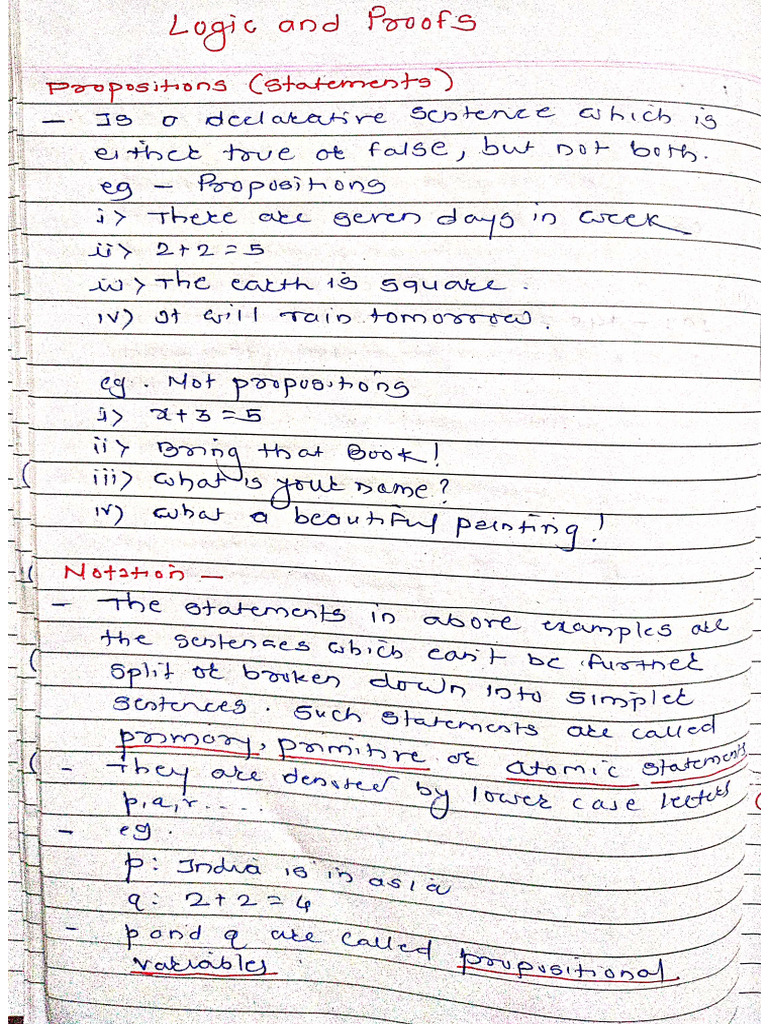 Logic and Proofs
Propositions (Statements)
- Is a declarative sentence which is
either true or false, but not both.
eg - Propositions
i> There are seven days in week
ii> 2+2=5
iii> The earth is square.
iv) It will rain tomorrow.
eg. Not propositions
i> x+3=5
ii> Bring that Book!
iii> what is your name?
iv) what a beautiful painting!
Notation -
- The statements in above examples are
the sentences which can't be further
split or broken down into simpler
sentences. Such statements are called
primary, primitive or atomic statements
- They are denoted by lower case letters
p,q,r....
- eg.
p: India is in asia
q: 2+2=4
- p and q are called propositional
variables